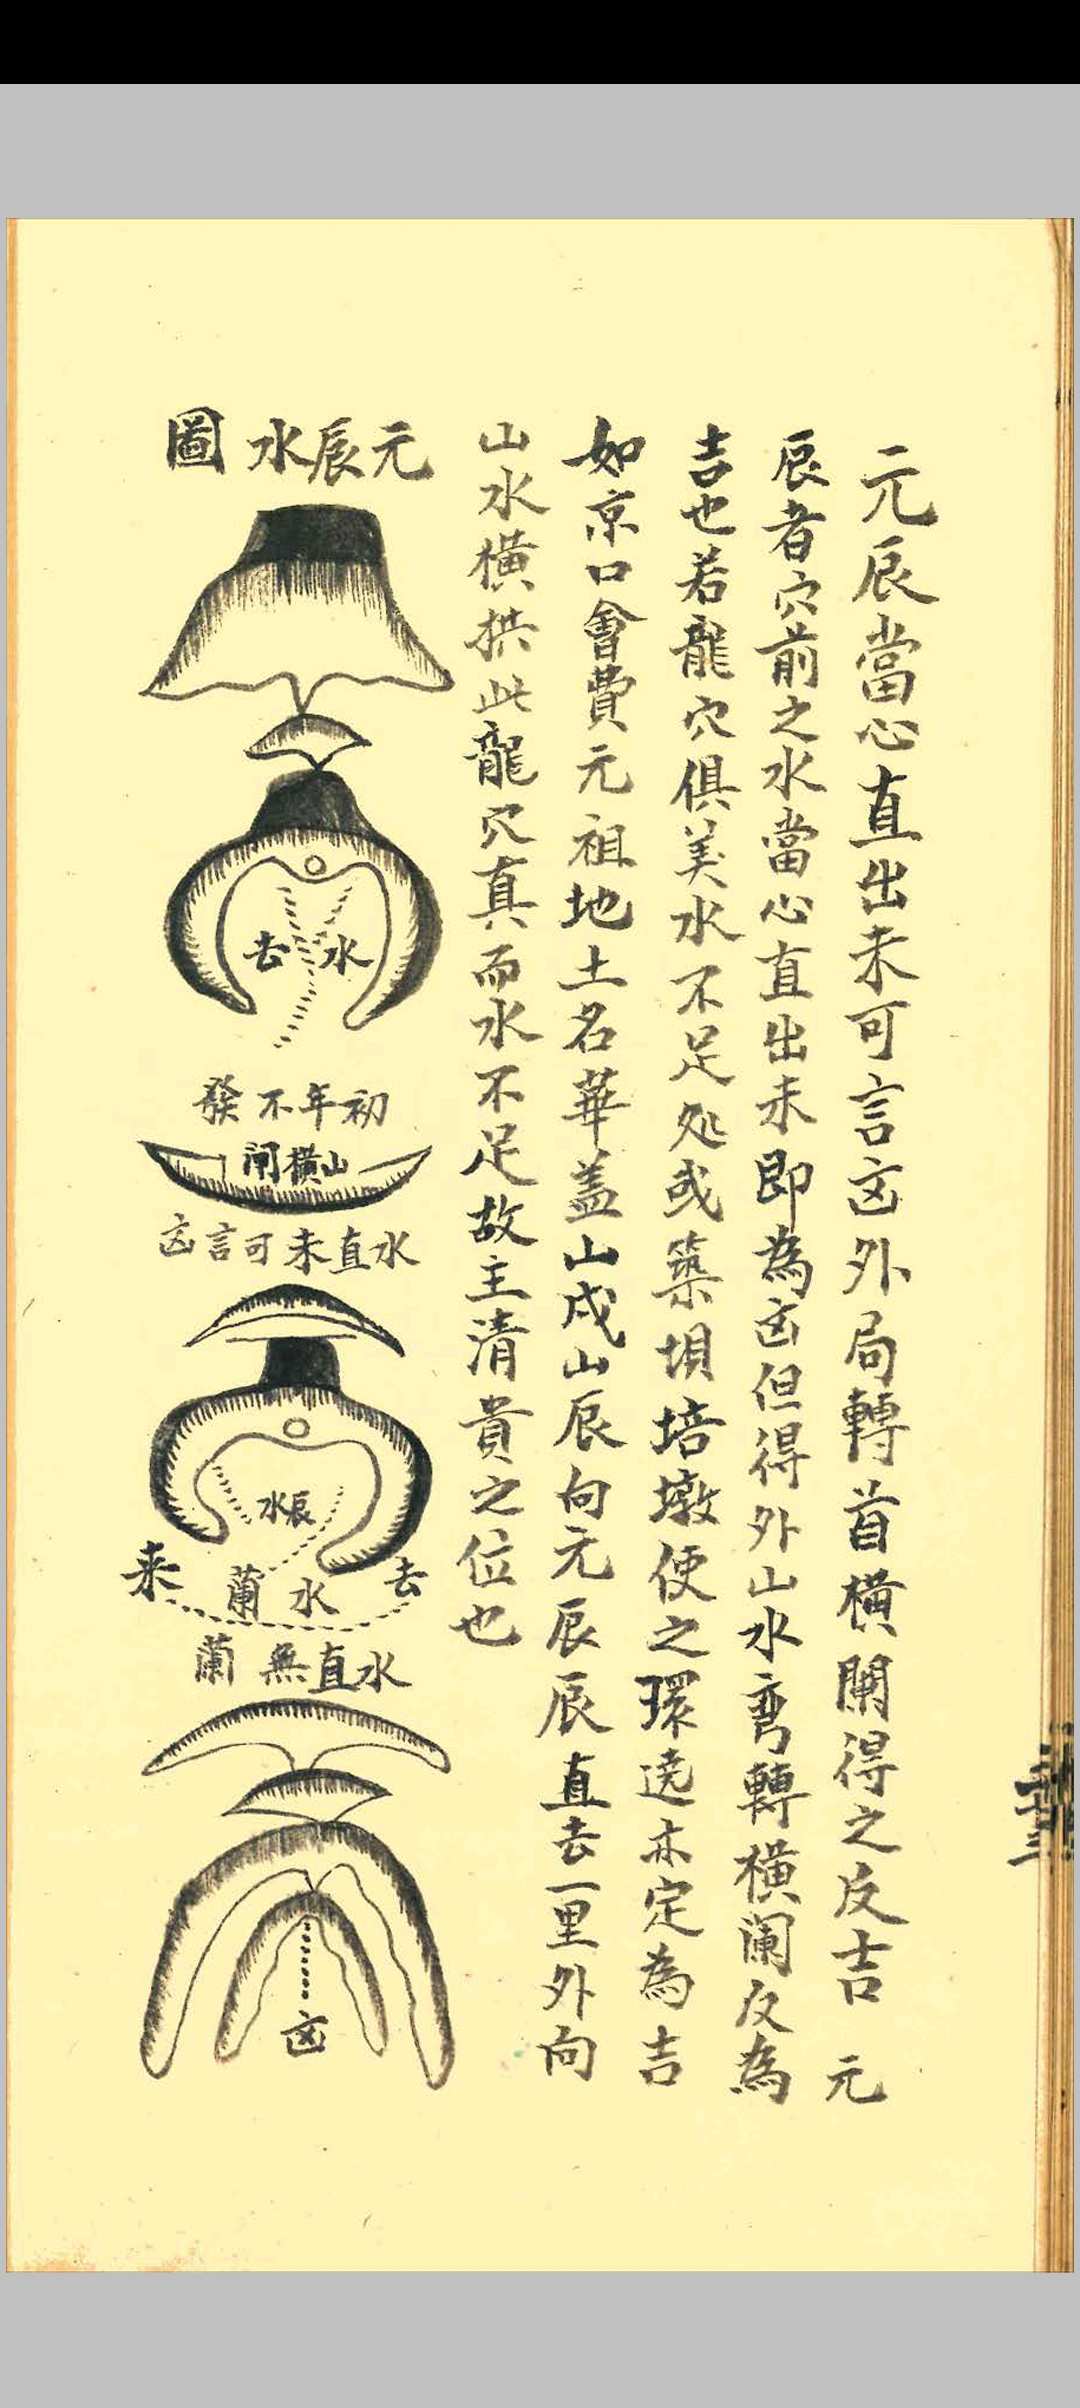 元辰當心直出未可言㐫外局轉首橫闌得之反吉 元
辰者穴前之水當心直出未即為㐫但得外山水弯轉橫闌反為
吉也若龍穴俱美水不足処或築垻培墩使之環遶亦定為吉
如京口會費元祖地土名華盖山戌山辰向元辰辰直去一里外向
山水橫拱此龍穴真而水不足故主清貴之位也
元辰水圖
水去
初年不發
山橫闸
水直未可言㐫
辰水
来 水蘭 去
水直無蘭
㐫